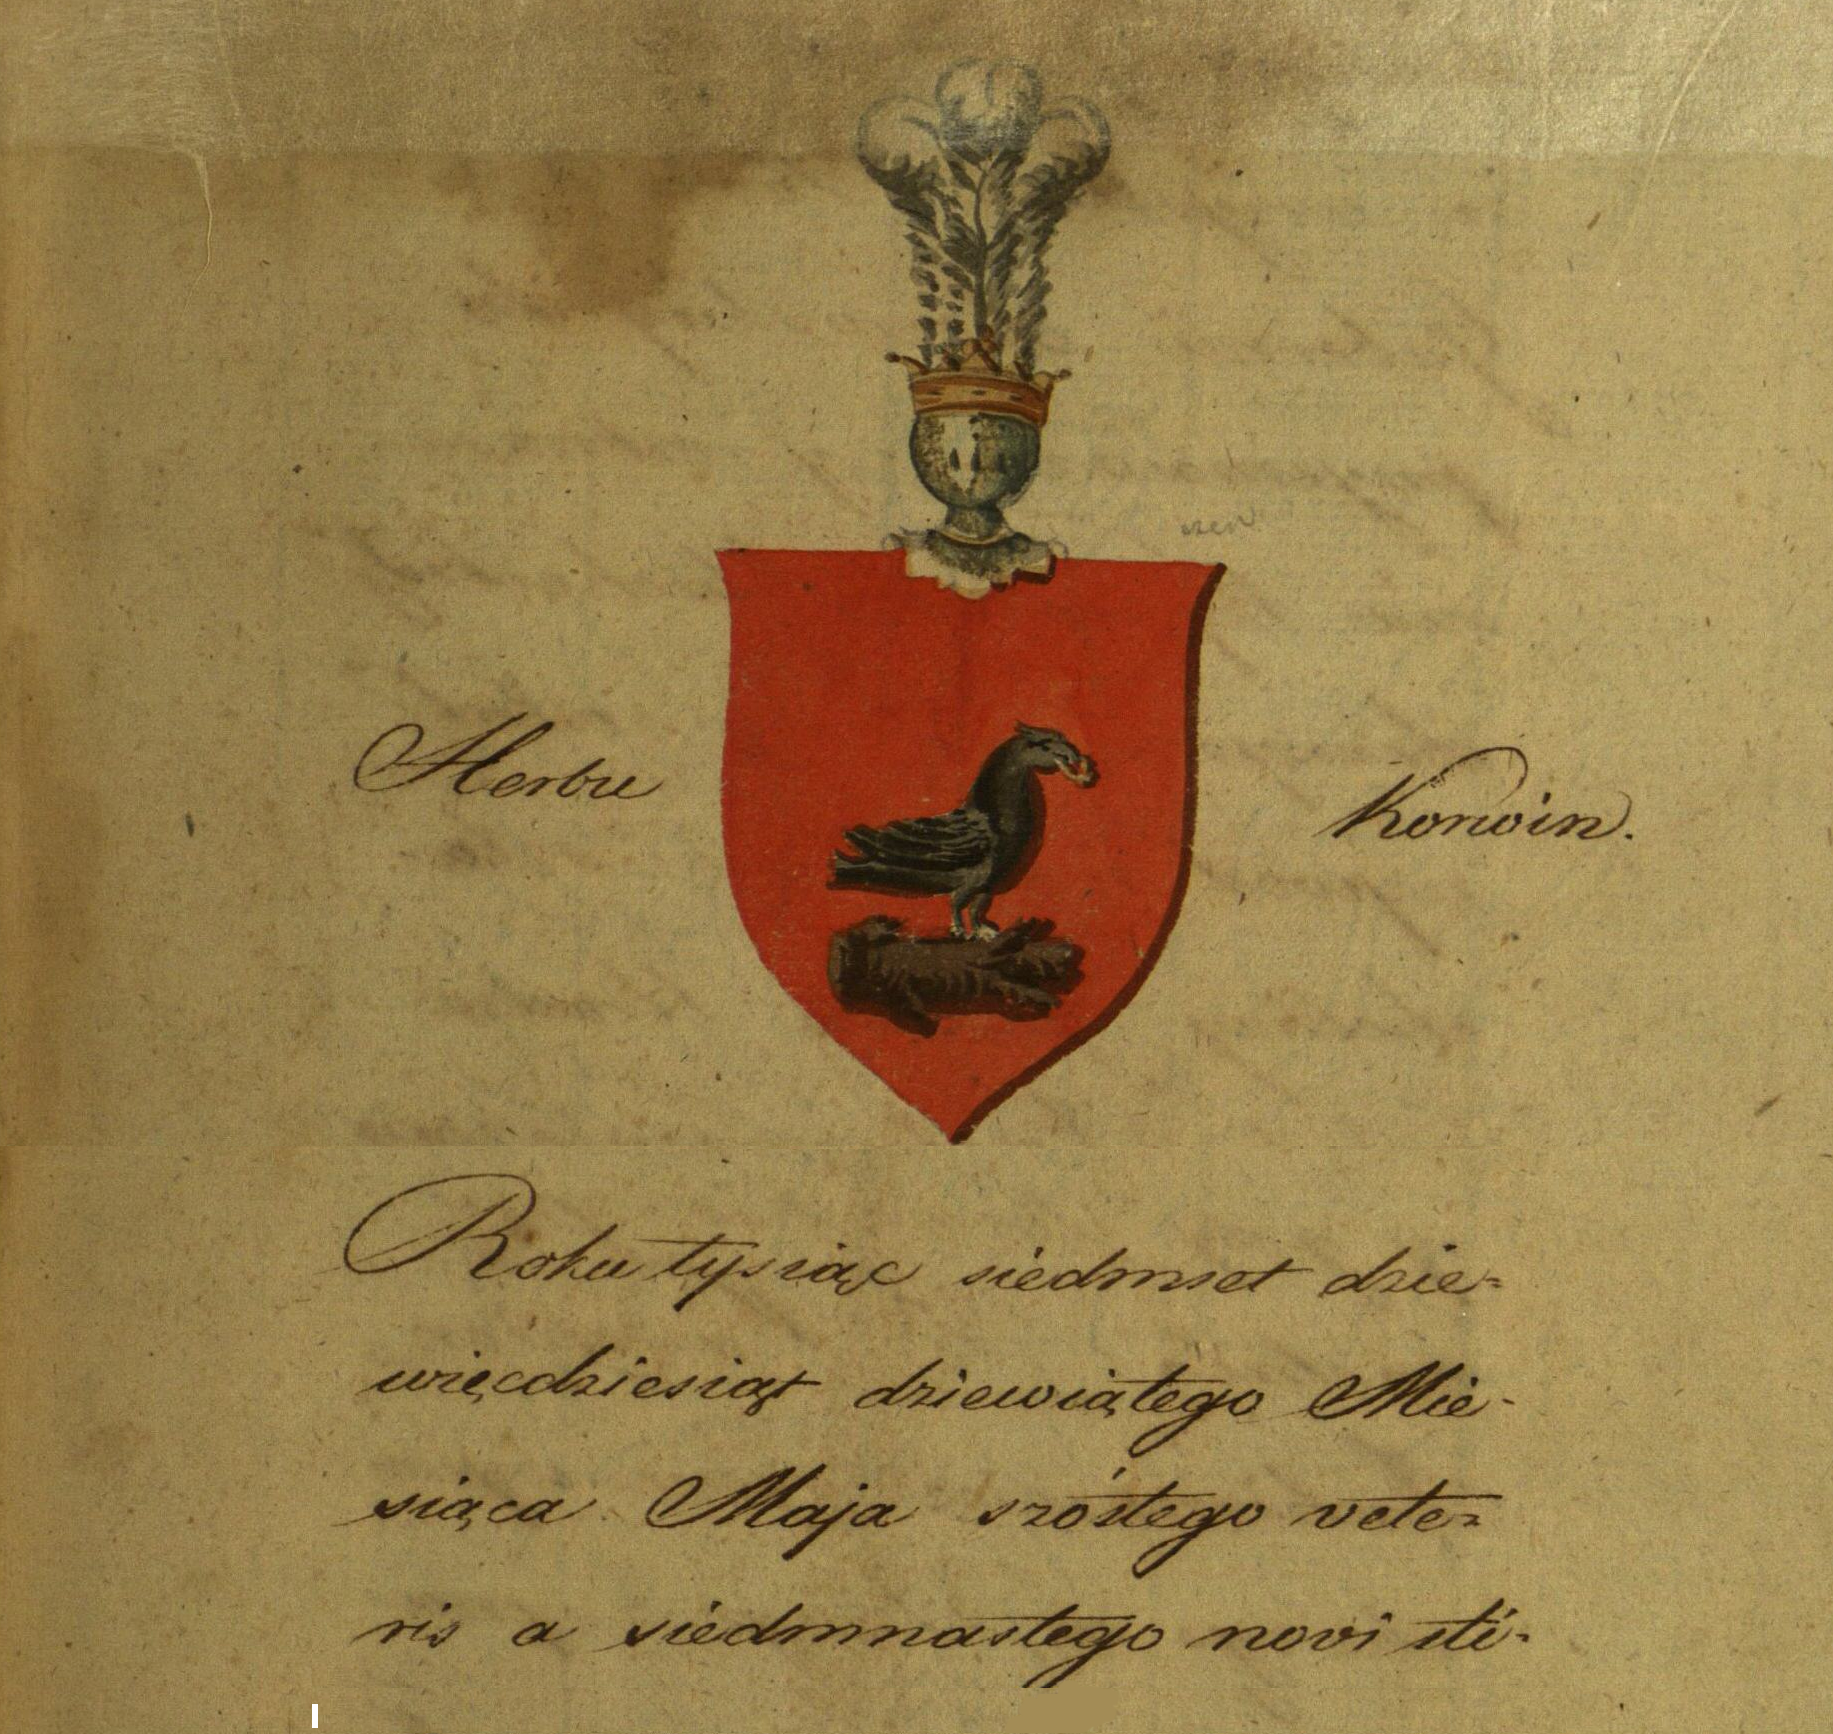 Herbu Korwin.
Roku tysiąc siedmset dzie=
więcdziesiąt dziewiątego Mie-
siąca Maja szóstego vete=
ris a siedmnastego novi sti-